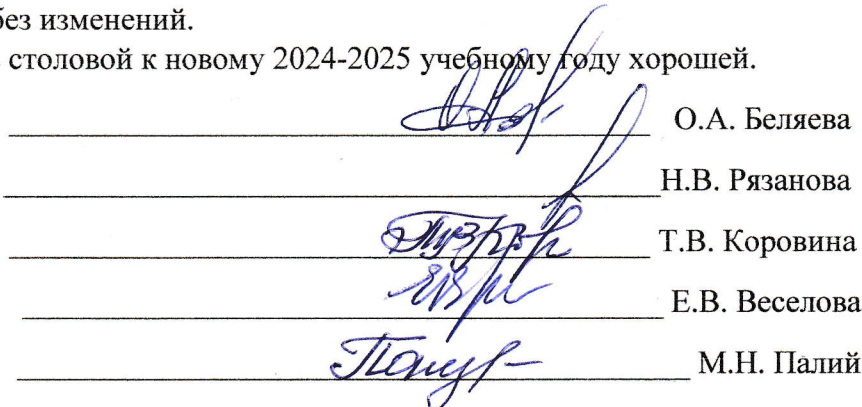 без изменений.
столовой к новому 2024-2025 учебному году хорошей.
О.А. Беляева
Н.В. Рязанова
Т.В. Коровина
Е.В. Веселова
М.Н. Палий